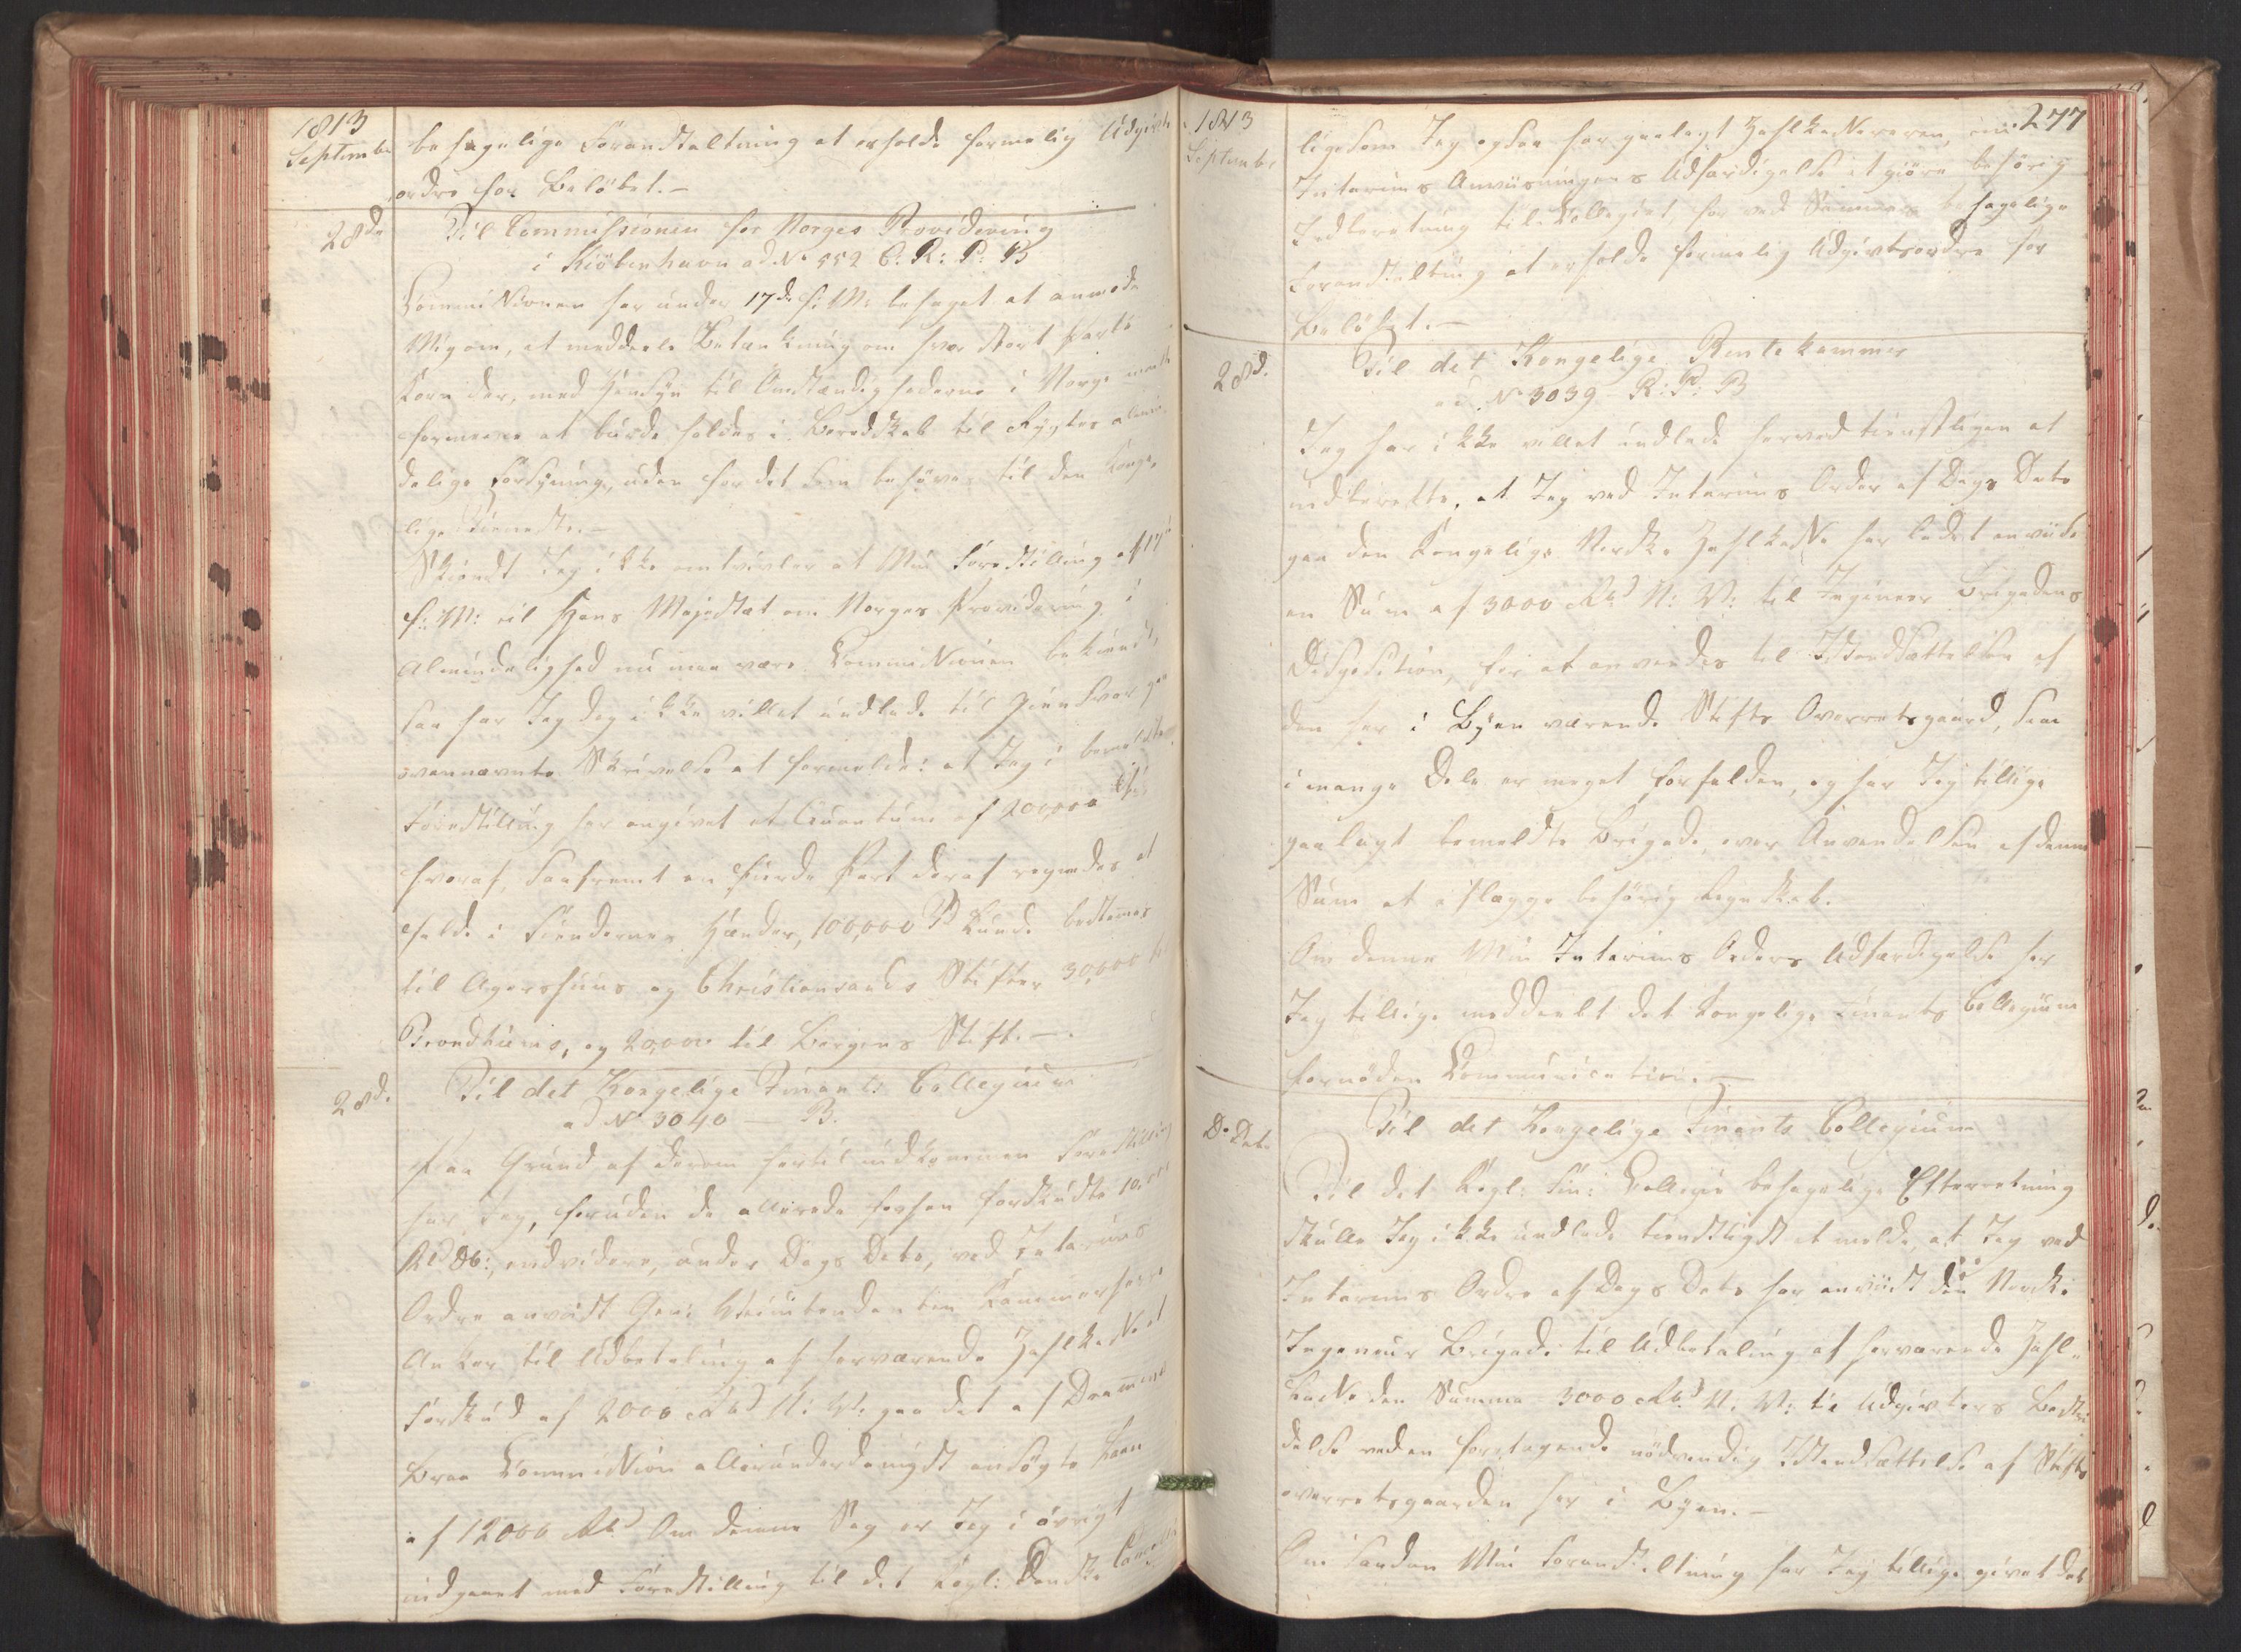 1813
Septembr
behagelige Foranstaltning at erholde formelig Udgivts
ordre for Beløbet.-
28de
Til Commissionen for Norges Providering
i Kiöbenhavn ad No 552 C: R: P: B
Commissionen har under 17de f: M: behaget at anmode
Mig om, at meddeele Betænkning om hvor stort Parti
Korn der, med Hensyn til Omstændighederne i Norge
formeenes at burde holdes i Beredskab til Rygtes almin-
delige Forsyning, uden for det som behöves til den Konge-
lige Tieneste.-
Skiöndt Jeg ikke omtvivler at Min Forestilling af 17de
f: M: til Hans Majestæt om Norges Providering i
Almindelighed nu maa være Commissionen bekiendt,
saa har Jeg dog ikke villet undlade til Giensvar paa
ovennævnte Skrivelse at formelde: at Jeg i bemeldte
Forestilling har angivet et Quantum af 200,000
hvoraf, saafremt en fierde Part deraf regnedes at
falde i Fiendernes Hænder, 100,000 Tdr kunde bestemmes
til Agershuus og Christiansands Stifter 30,000 til
Trondhiems, og 20,000 til Bergens Stift.-
28d.
Til det Kongelige Finants Collegium
ad No 3040 - B.
Paa Grund af derom hertil indkommen Forestilling
har Jeg, foruden de allerede forhen forskudte 10,000
Rd DC:, endvidere, under Dags Dato, ved Interims
Ordre anviist Gen: Krigsintendanten Kammerherre
Anker til Udbetaling af herværende Zahlkasse et
Forskud af 2000 Rbd N: V: paa det af Drammens
Braa Commission allerunderdanigst ansögte Laan
af 12000 Rbd Om denne Sag er Jeg i övrigt
indgaaet med Forestilling til det kongl: Danske Cancellie
277
1813
Septembr
ligesom Jeg ogsaa har paalagt Zahlkassereren, om
Interims Anviisningens Udfærdigelse at giöre behörig
Indberetning til Collegiet for ved Sammes behagelige
Foranstaltning at erholde formelig Udgivtsordre for
Belöbet.-
28d.
Til det Kongelige Rentekammer
ad No 3039 R: P: B
Jeg har ikke villet undlade herved tienstligen at
indberette, at Jeg ved Interims Ordre af Dags Dato
paa den Kongelige Norske Zahlkasse har ladet anviise
en Sum af 3000 Rbd N: V: til Ingenieur Brigadens
Disposition, for at anvendes til Istandsættelsen af
den her i Byen værende Stifts Overretsgaard, som
i mange Dele er meget forfalden, og har Jeg tillige
paalagt bemeldte Brigade, over Anvendelsen af denne
Sum at aflægge behörig Regnskab.
Om denne Min Interims Ordres Udfærdigelse har
Jeg tillige meddeelt det Kongelige Finants Collegium
fornöden Communication.-
D. Dat.
Til det Kongelige Finants Collegium
Til det Kgl: Fin: Collegii behagelige Efterretning
skulle Jeg ikke undlade tienstligst at melde, at Jeg ved
Interims Ordre af Dags Dato har anviist den Norske
Ingenieur Brigade til Udbetaling af herværende Zahl-
kasse den Summa 3000 Rbd N: V: til Udgivters Bestri-
delse ved en foretagende nödvendig Istandsættelse af Stifts
overretsgaarden her i Byen.-
Om saadan Min Foranstaltning har Jeg tillige givet det